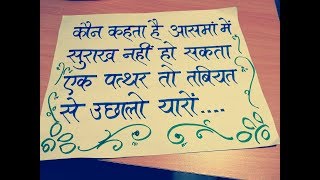 कौन कहता है आसमां में
सुराख नहीं हो सकता
एक पत्थर तो तबियत
से उछालो यारों....